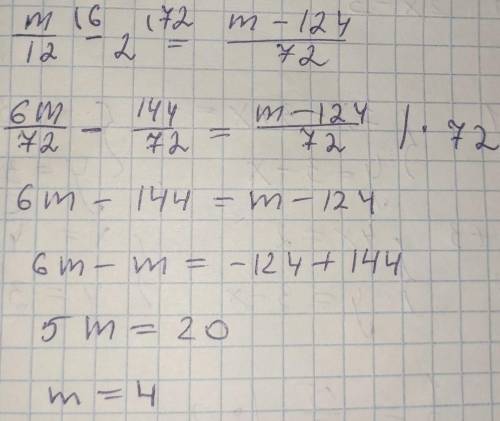 m/12 (6 - 2 (72 = m - 124/72
6m/72 - 144/72 = m - 124/72 | · 72
6m - 144 = m - 124
6m - m = -124 + 144
5m = 20
m = 4